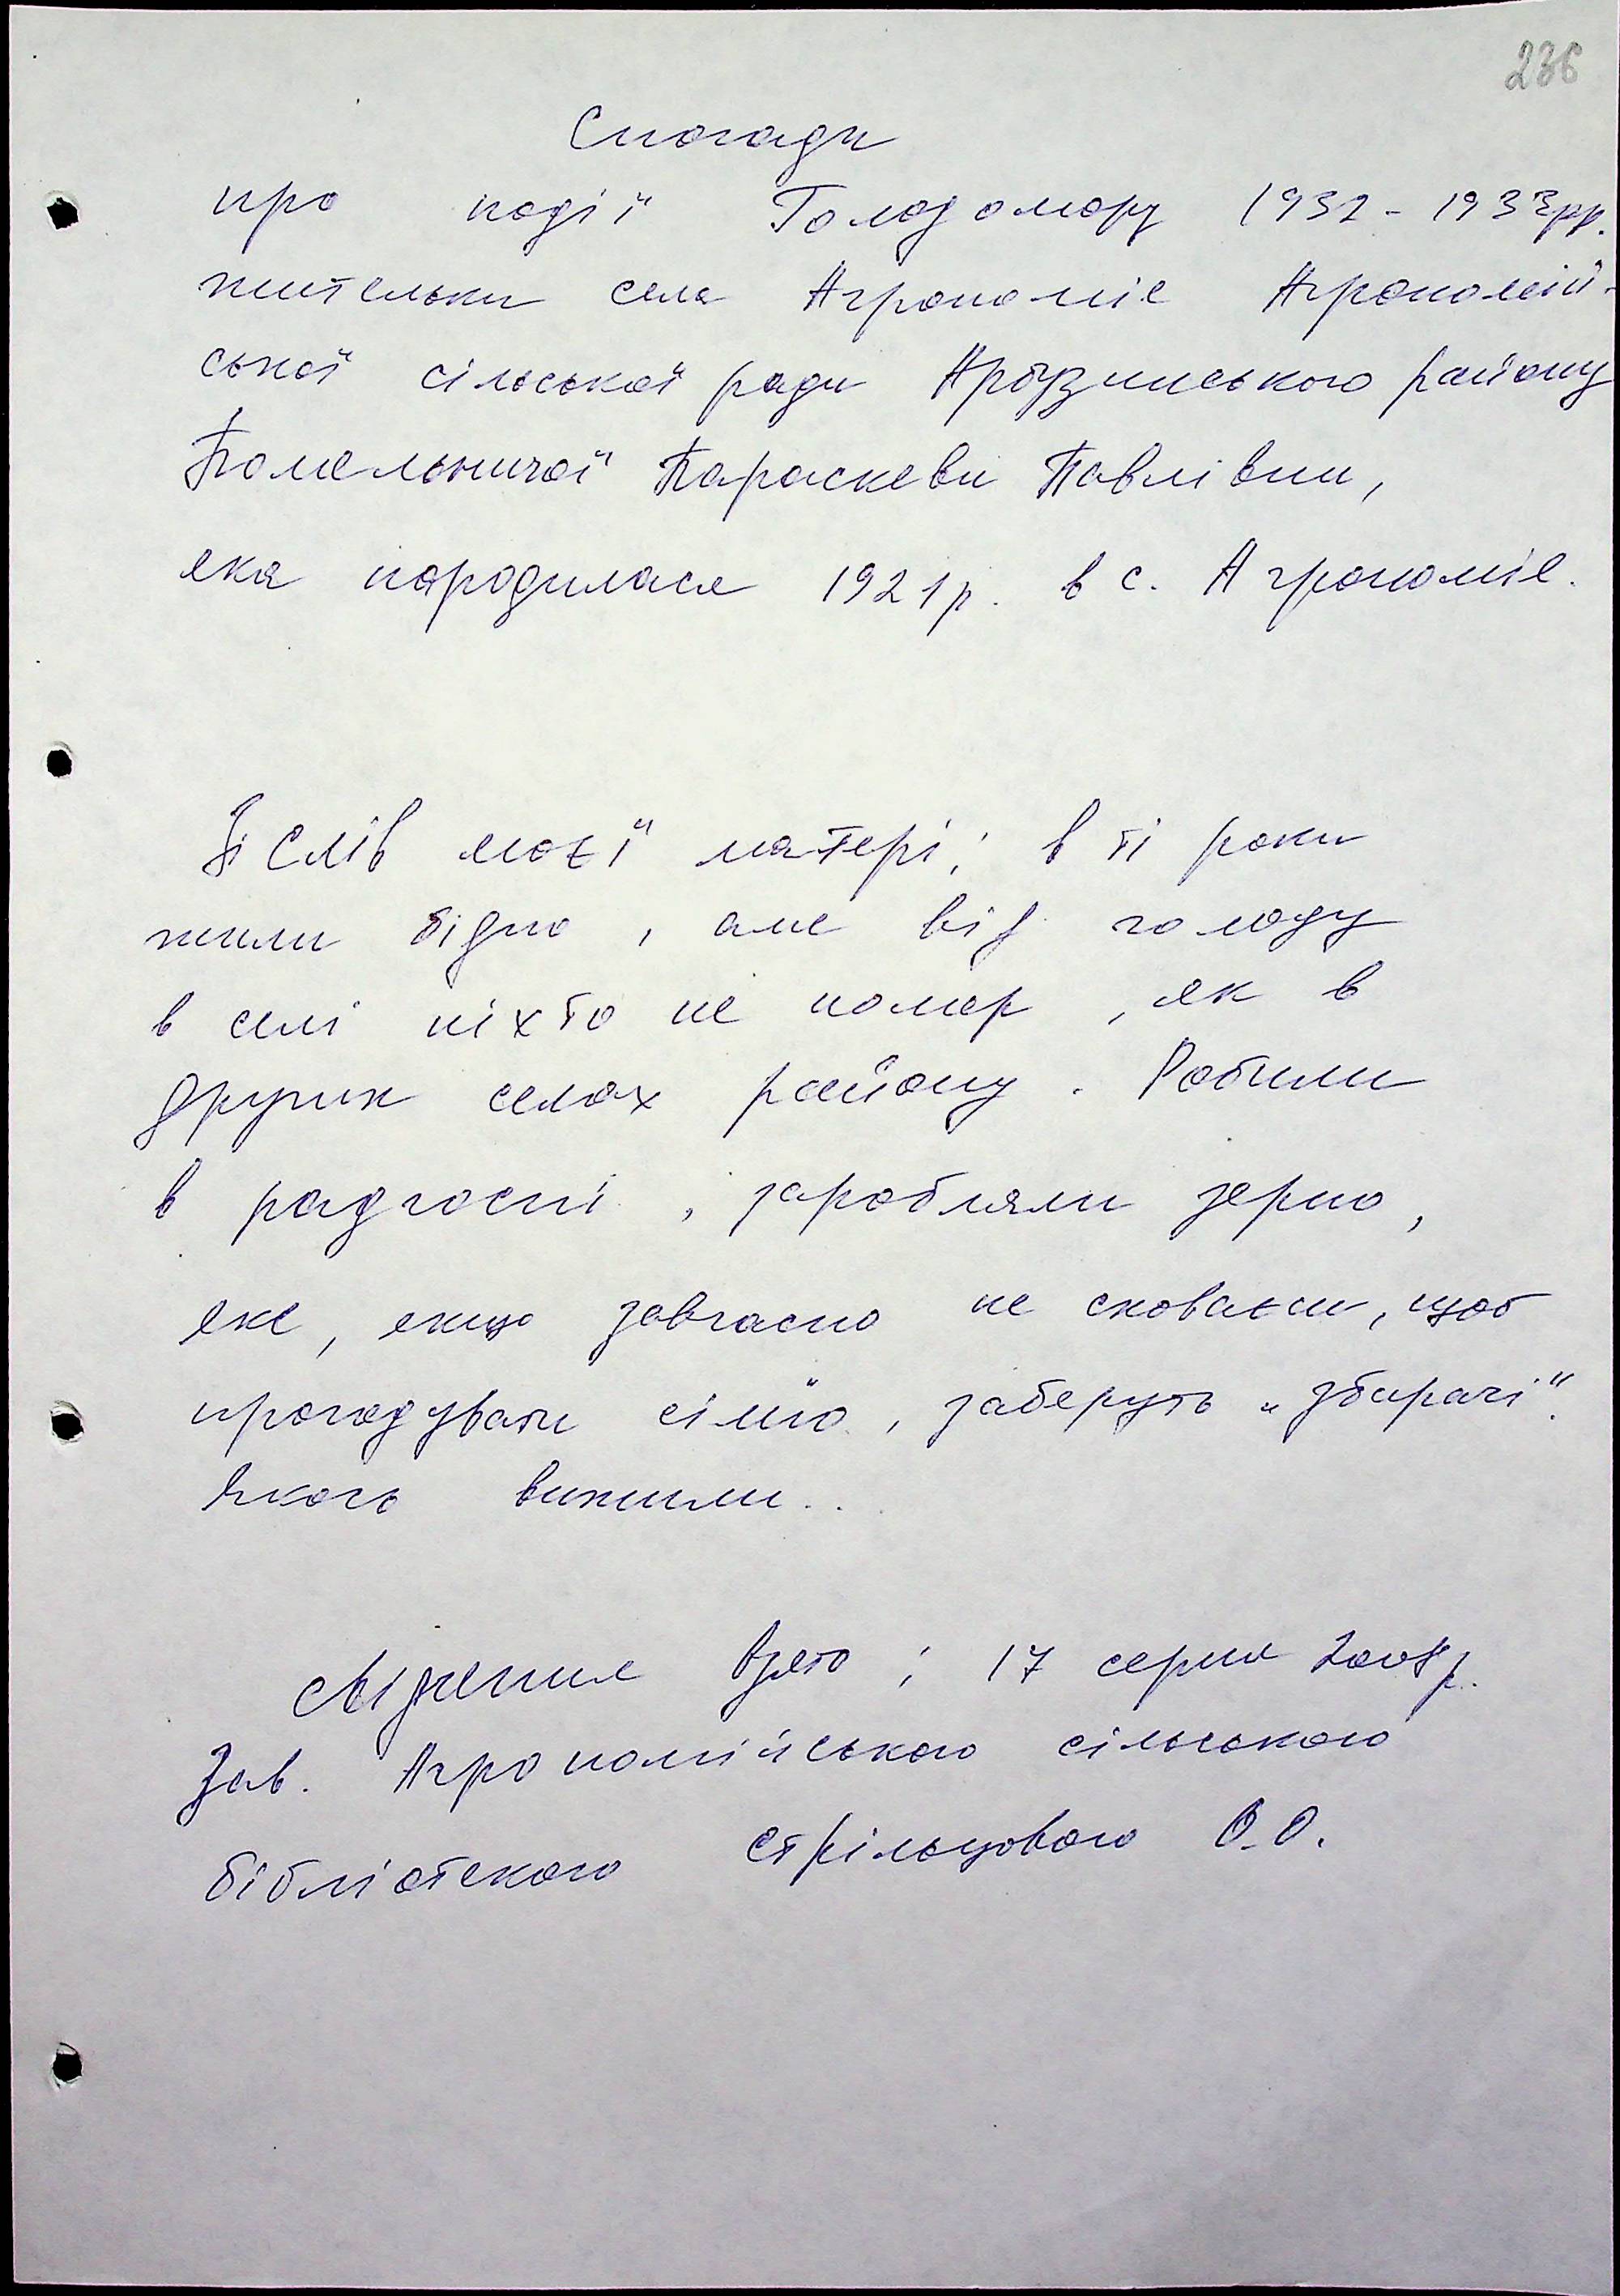 236
Спогади
про події Голодомору 1932-1933рр.
жительки села Агрономія Агрономій-
ської сільської ради Арбузинського району
Помельничої Параскеви Павлівни,
яка народилася 1921р. в с. Агрономія.
Зі слів моєї матері; в ті роки
жили бідно, але від голоду
в селі ніхто не помер, як в
других селах району. Робили
в радгоспі, заробляли зерно,
яке, якщо завчасно не сховаєш, щоб
прогодувати сім'ю, заберуть „збирачі".
Якось вижили..
Свідчення взято; 17 серпня 2008р.
Зав. Агрономійською сільською
бібліотекою Стрільцовою О.О.